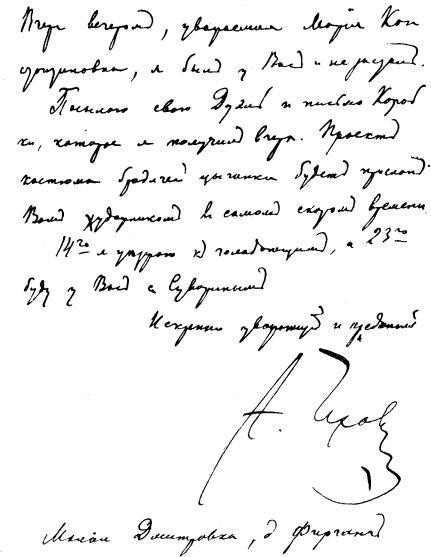 Вчера вечеромъ, уважаемая Марія Кон
стантиновна, я былъ у Васъ и не засталъ.
Посылаю свою Дуэль и письмо Короб
ки, которое я получилъ вчера. Проектъ
костюма бродячей цыганки будетъ присланъ
Вамъ художникомъ въ самомъ скоромъ времени.
14го я уѣзжаю къ голодающимъ, а 23го
буду у Васъ съ Суворинымъ
Искренно уважающій и преданный
А. Чехов
Малая Дмитровка, д Фирганъ